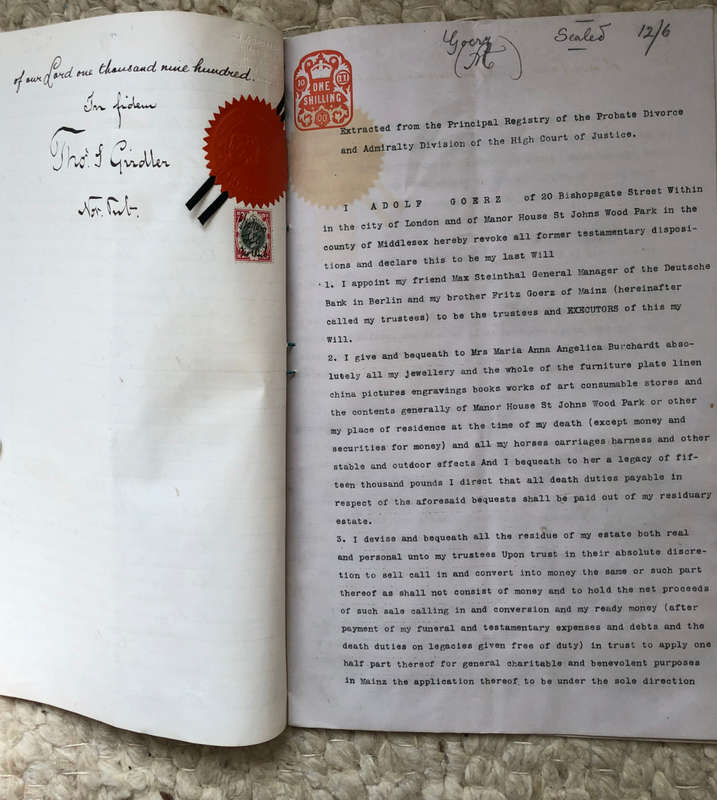 of our Lord one thousand nine hundred.
In fidem
Thos. F Girdler
Not. Pub.
Goerz
(A)
Sealed 12/6
10 11
ONE
SHILLING
Extracted from the Principal Registry of the Probate Divorce
and Admiralty Division of the High Court of Justice.
I ADOLF GOERZ of 20 Bishopsgate Street Within
in the city of London and of Manor House St Johns Wood Park in the
county of Middlesex hereby revoke all former testamentary disposi-
tions and declare this to be my last Will
1. I appoint my friend Max Steinthal General Manager of the Deutsche
Bank in Berlin and my brother Fritz Goerz of Mainz (hereinafter
called my trustees) to be the trustees and EXECUTORS of this my
Will.
2. I give and bequeath to Mrs Maria Anna Angelica Burchardt abso-
lutely all my jewellery and the whole of the furniture plate linen
china pictures engravings books works of art consumable stores and
the contents generally of Manor House St Johns Wood Park or other
my place of residence at the time of my death (except money and
securities for money) and all my horses carriages harness and other
stable and outdoor effects And I bequeath to her a legacy of fif-
teen thousand pounds I direct that all death duties payable in
respect of the aforesaid bequests shall be paid out of my residuary
estate.
3. I devise and bequeath all the residue of my estate both real
and personal unto my trustees Upon trust in their absolute discre-
tion to sell call in and convert into money the same or such part
thereof as shall not consist of money and to hold the net proceeds
of such sale calling in and conversion and my ready money (after
payment of my funeral and testamentary expenses and debts and the
death duties on legacies given free of duty) in trust to apply one
half part thereof for general charitable and benevolent purposes
in Mainz the application thereof to be under the sole direction